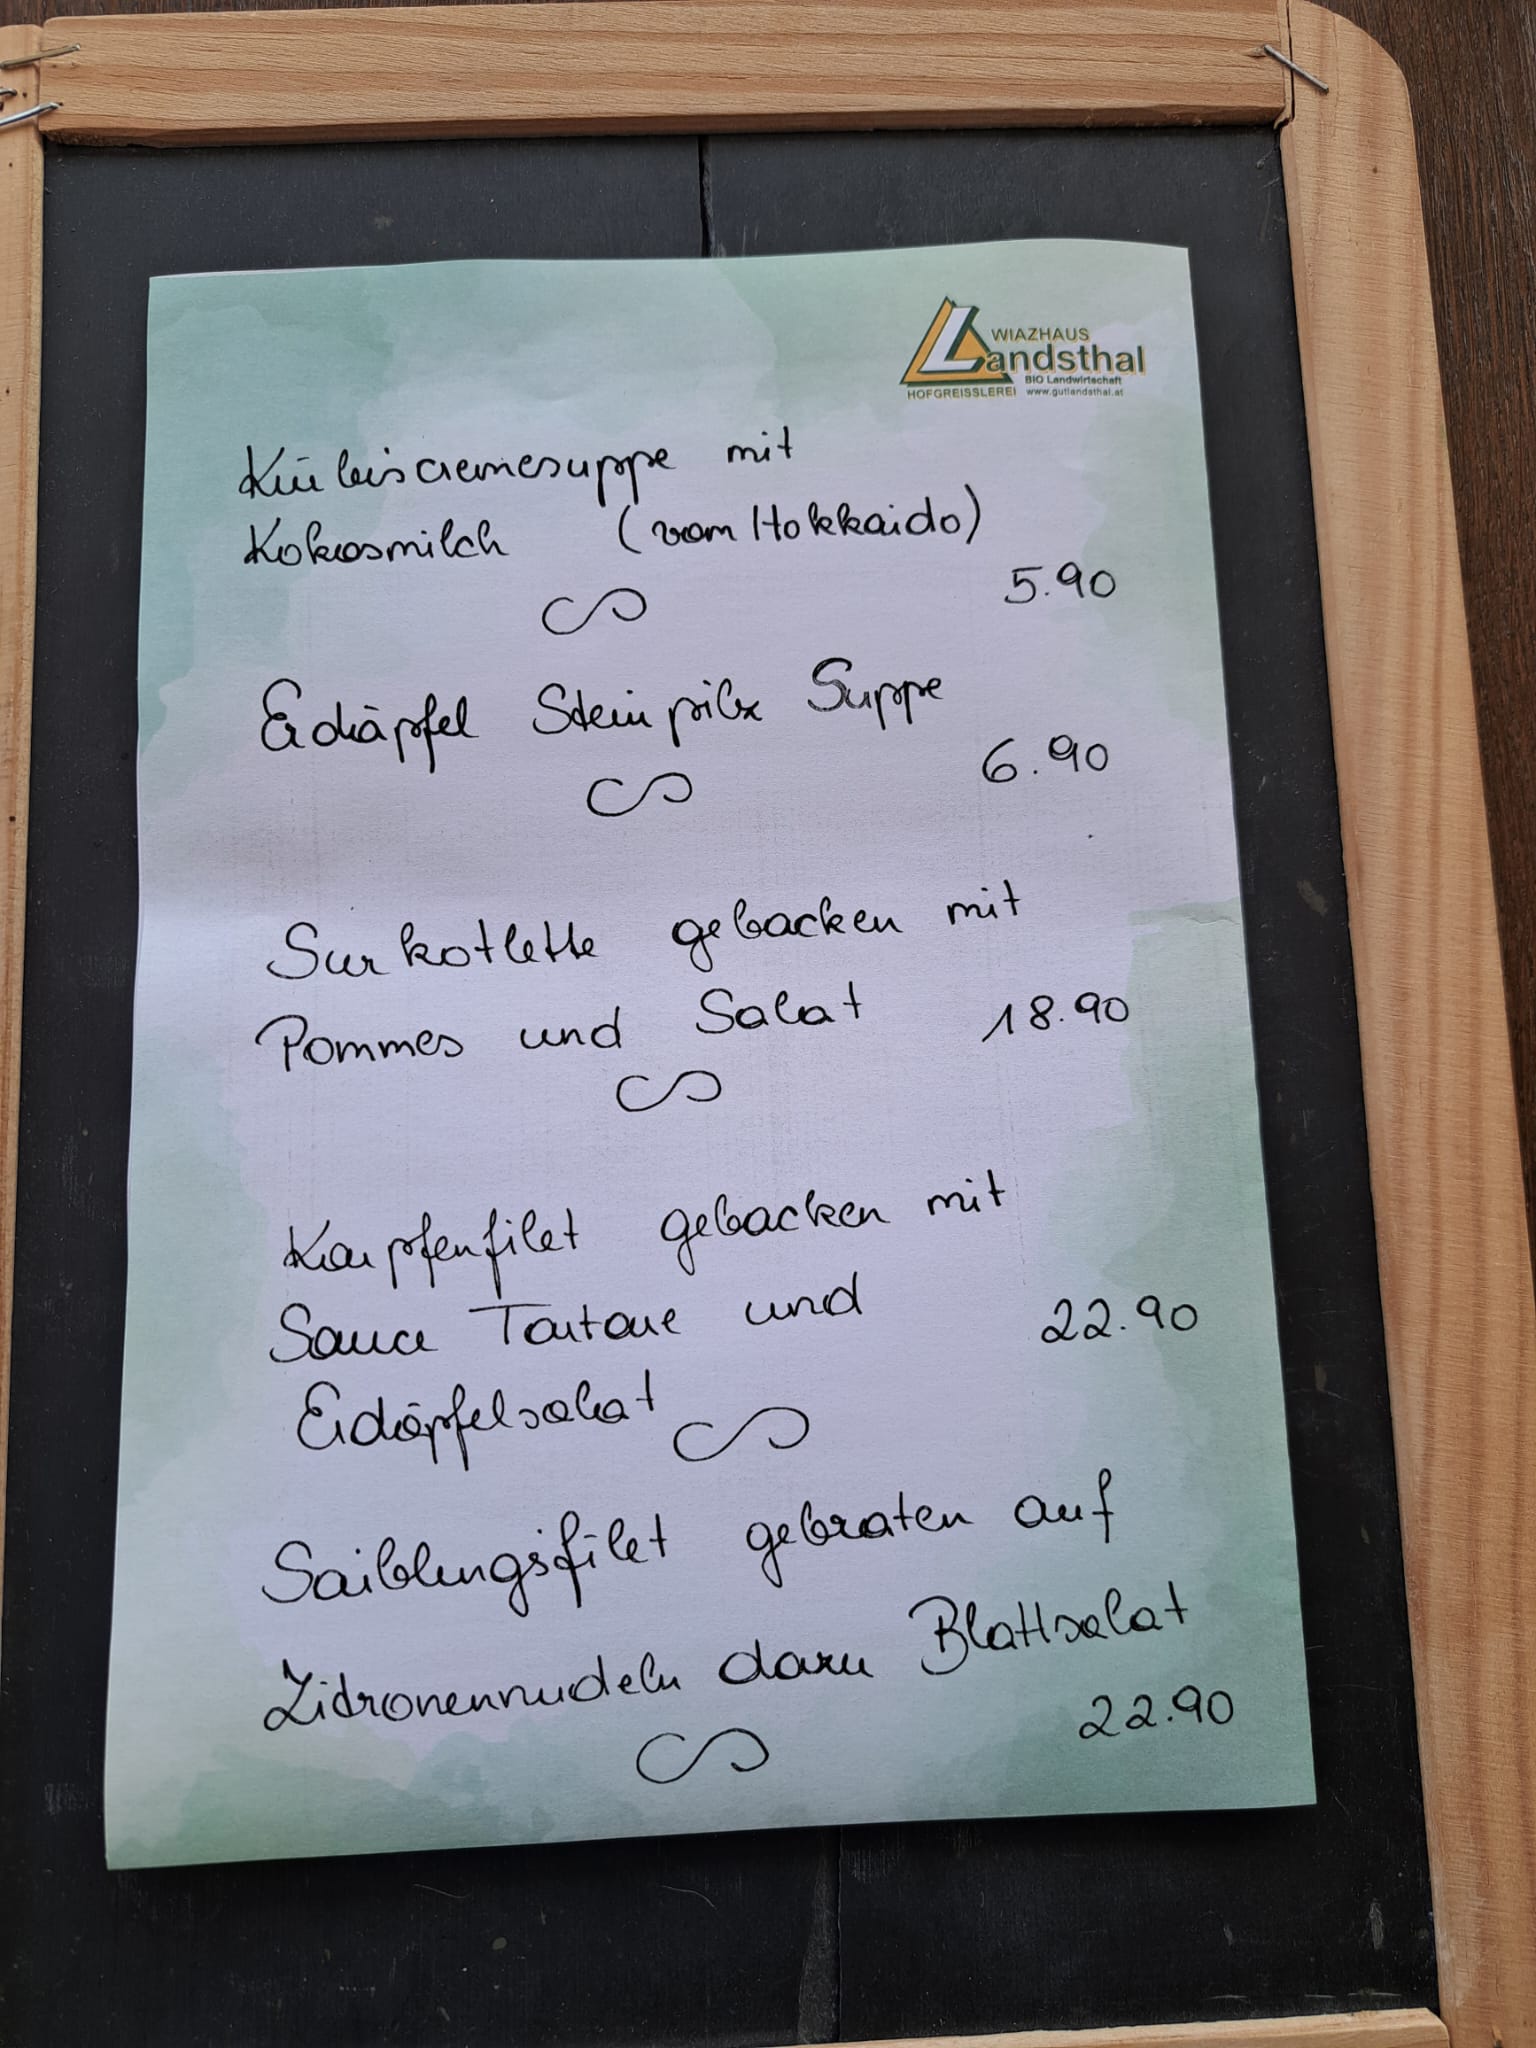 WIAZHAUS
Landsthal
BIO Landwirtschaft
HOFGREISSLEREI www.gutlandsthal.at
Kürbiscremesuppe mit
Kokosmilch (vom Hokkaido)
5.90
Erdäpfel Steinpilz Suppe
6.90
Surkotlette gebacken mit
Pommes und Salat 18.90
Karpfenfilet gebacken mit
Sauce Tartare und 22.90
Erdäpfelsalat
Saiblingsfilet gebraten auf
Zitronennudeln dazu Blattsalat
22.90